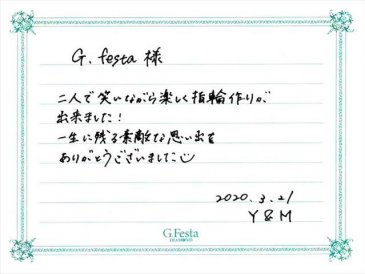 G. festa 様
二人で笑いながら楽しく指輪作りが
出来ました!
一生に残る素敵な思い出を
ありがとうございました
2020.3.21
Y & M
G.Festa
DIAMOND